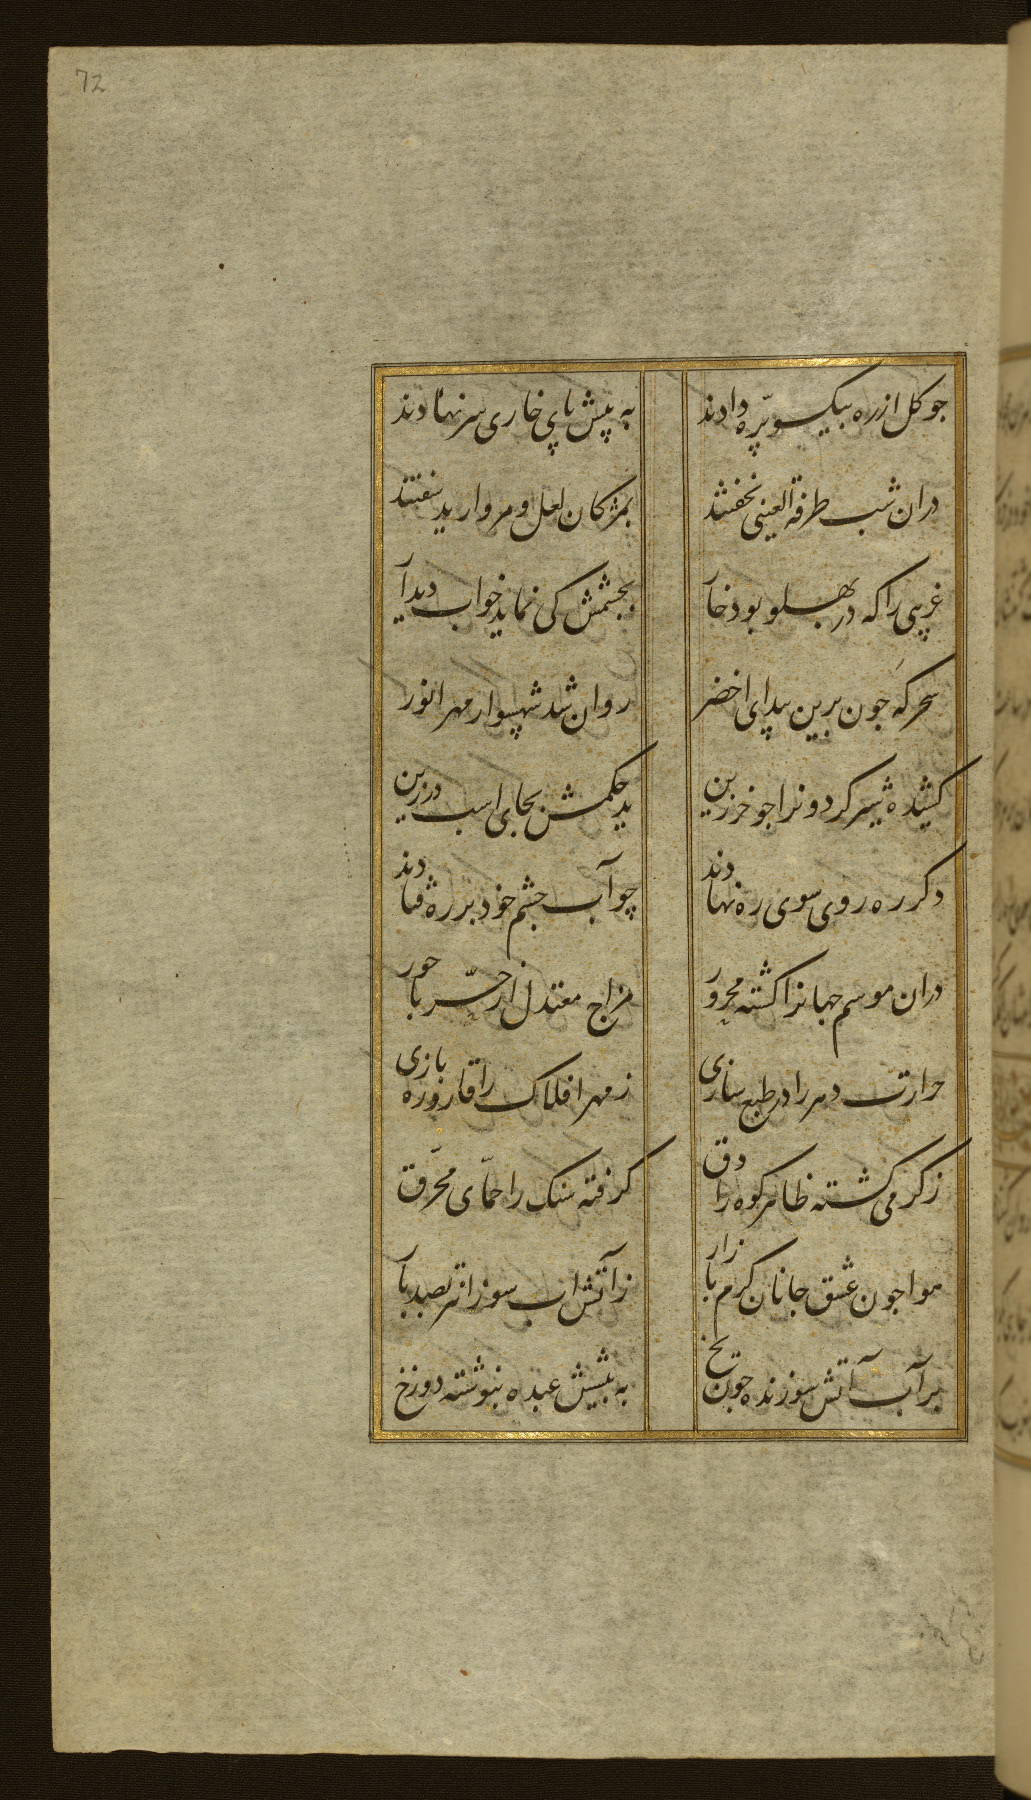 72
جو کل از ره بیکسو پرّه دادند
به پیش پای خاری سر نهادند
دران شب طرفة العینی نخفتند
بمژکان لعل و مروارید سفتند
غریبی را که در بهلو بود خار
بجشمش کی نماید خواب دیدار
سحرکه جون برین بیدای اخضر
روان شد شهسوار مهر انور
کشیده شیر کردونرا جو خر زین
بجای اسب در زین
دکر ره روی سوی ره نهادند
چو آب جشم خود بر ره فتادند
دران موسم جهانرا کشته محرور
مزاج معتدل از حرّ با حور
حرارت دهر را در طبع ساری
ز مهر افلاک را قاروره بازی
ز کرمی کشته ظاهر کوه را دق
کرفته سنک را حمّای محرّق
هوا جون عشق جانان کرم بازار
ز آتش اب سوزانتر بصد بار
بر آب آتش سوزنده جون یخ
به پیشش عبده بنوشته دوزخ